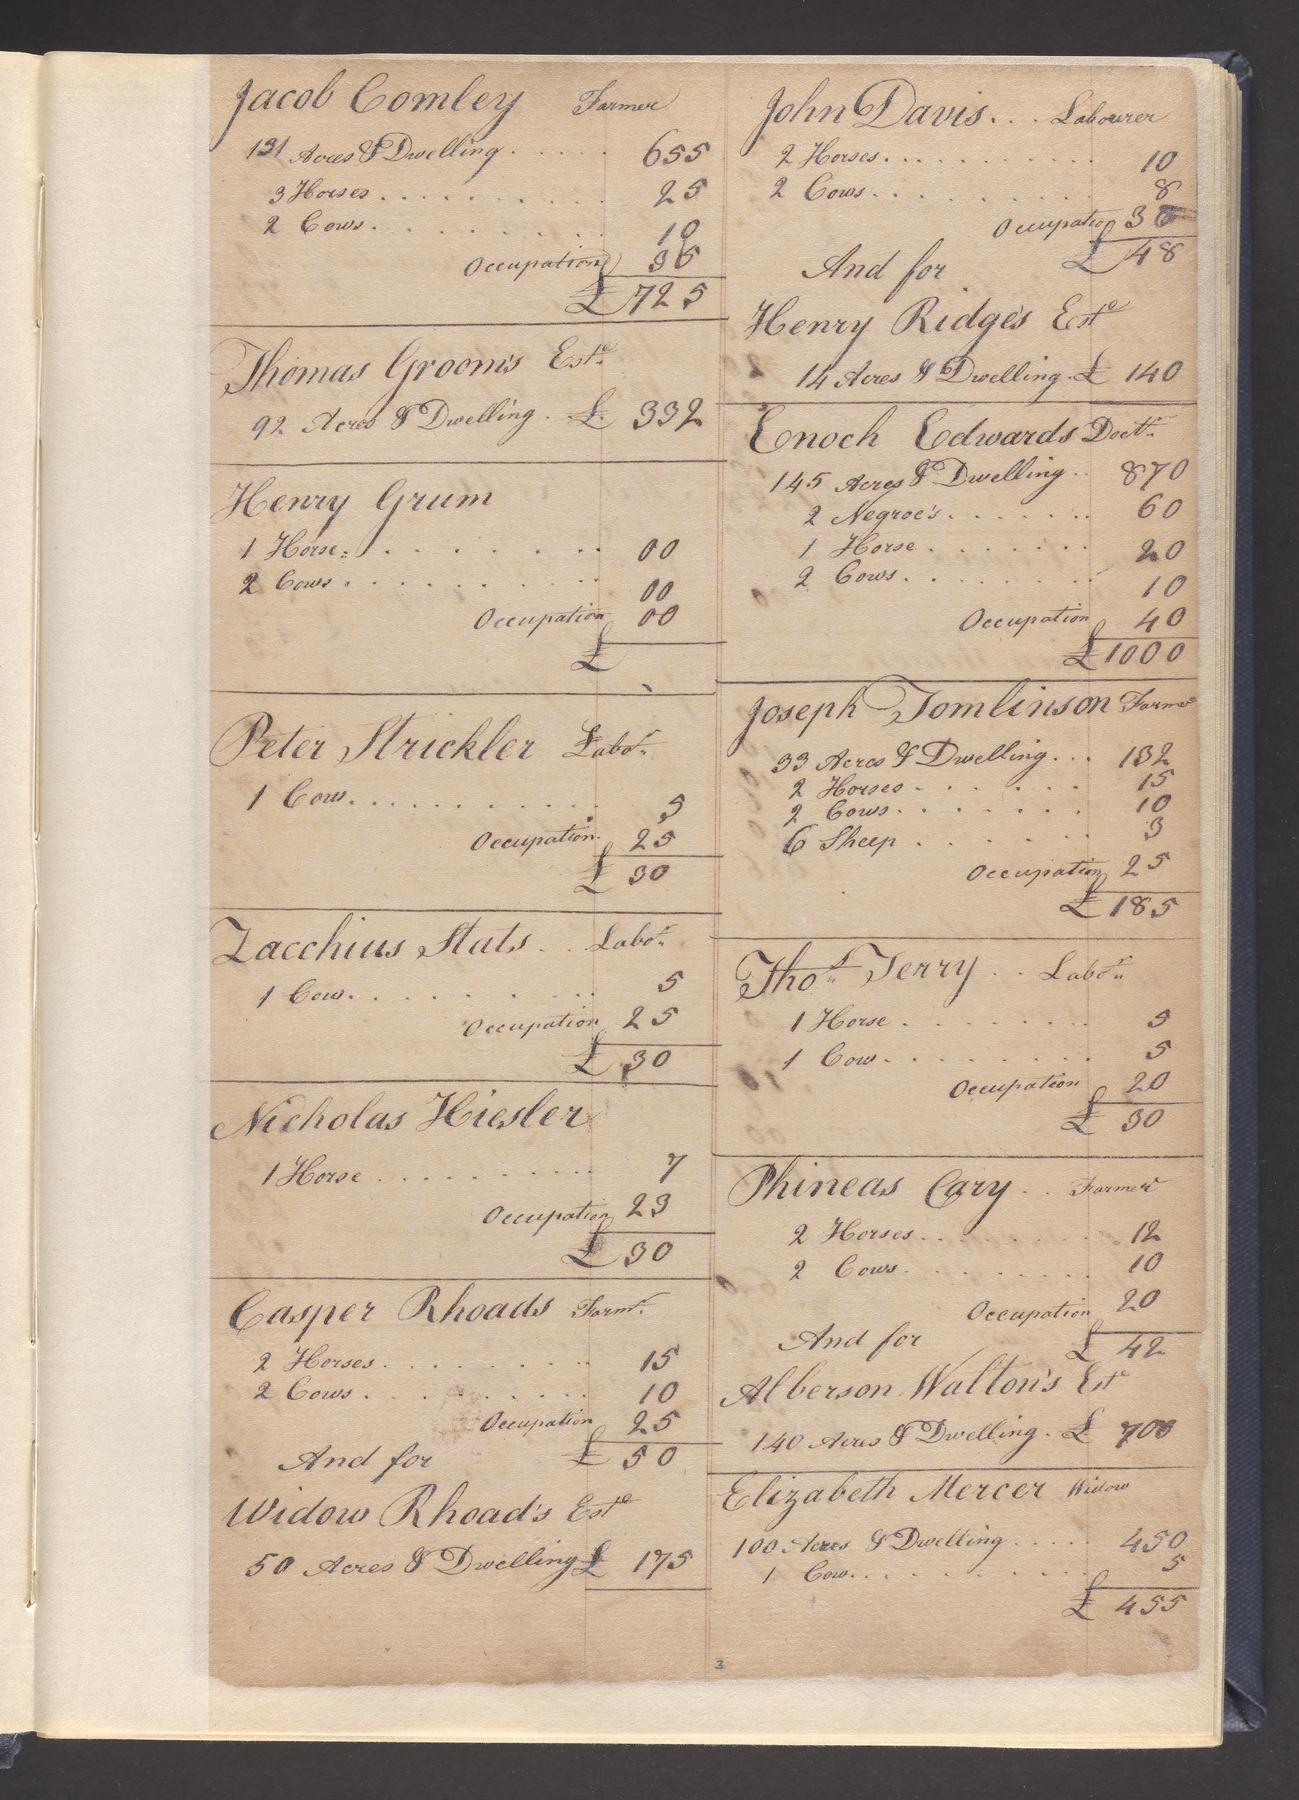 Jacob Comley Farmer
131 Acres & Dwelling . . . . . 655
3 Horses . . . . . . . . . . 25
2 Cows . . . . . . . . . . 10
Occupation 35
£ 725
Thomas Groom's Este
92 Acres & Dwelling . £ 332
Henry Grum
1 Horse . . . . . . . . 00
2 Cows . . . . . . . . . . 00
Occupation 00
£
Peter Strickler Labor
1 Cow . . . . . . . . . . . 5
Occupation 25
£ 30
Zacchius Stats . . Labor
1 Cow . . . . . . . . . 5
Occupation 25
£ 30
Nicholas Hiesler
1 Horse . . . . . . . . . 7
Occupation 23
£ 30
Casper Rhoads Farmr
2 Horses . . . . . . . . . . 15
2 Cows . . . . . . . . . . 10
Occupation 25
And for £ 50
Widow Rhoad's Este
50 Acres & Dwelling £ 175
John Davis . . . Labourer
2 Horses . . . . . . . . . . . 10
2 Cows . . . . . . . . . . 8
Occupation 30
£ 48
And for
Henry Ridge's Este
14 Acres & Dwelling . £ 140
Enoch Edwards Doctr
145 Acres & Dwelling . . 870
2 Negroe's . . . . . . . 60
1 Horse . . . . . . . 20
2 Cows . . . . . . . . 10
Occupation 40
£ 1000
Joseph Tomlinson Farmer
33 Acres & Dwelling . . . 132
2 Horses . . . . . . . 15
2 Cows . . . . . . . 10
6 Sheep . . . . . . . 3
Occupation 25
£ 185
Thos Terry . . . Labor
1 Horse . . . . . . . . . 5
1 Cow . . . . . . . . . . 5
Occupation 20
£ 30
Phineas Cary . . Farmer
2 Horses . . . . . . . . . 12
2 Cows . . . . . . . . . . 10
Occupation 20
And for £ 42
Alberson Walton's Este
140 Acres & Dwelling . £ 700
Elizabeth Mercer Widow
100 Acres & Dwelling . . . . . 450
1 Cow . . . . . . . . . . . 5
£ 455
3